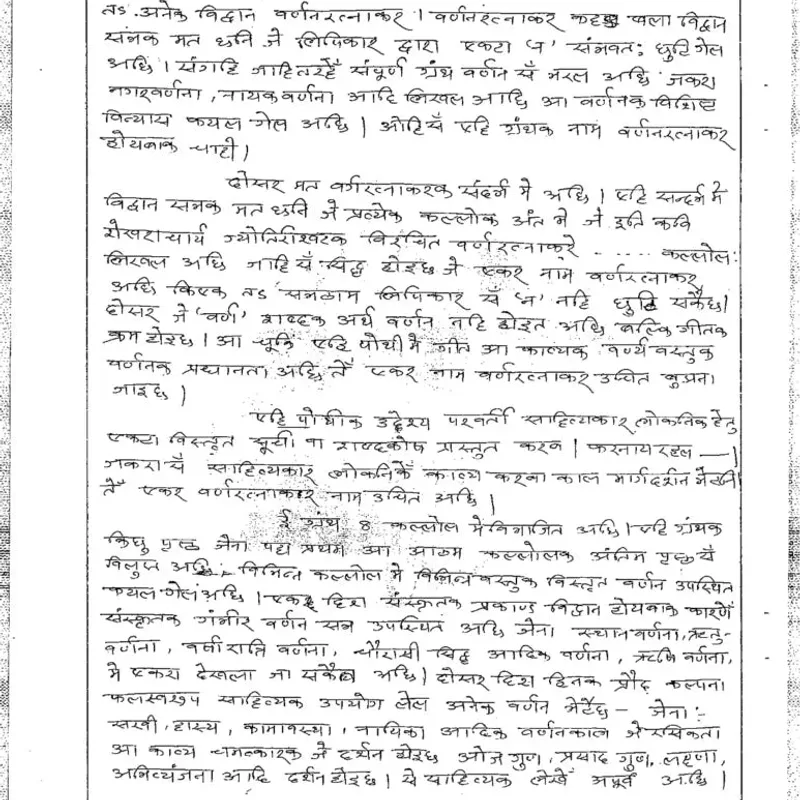 तऽ अनेक विद्वान वर्णनरत्नाकर । वर्णनरत्नाकर कहऽ वला विद्वान
सभक मत छनि जे लिपिकार द्वारा एकटा 'न' संभवतः छुटि गेल
अछि । संगहि जाहितरहेँ संपूर्ण ग्रंथ वर्णन सँ भरल अछि जकरा
नगरवर्णना, नायकवर्णना आदि लिखल अछि आ वर्णनक विशिष्ट
विन्यास कयल गेल अछि । ओहिसँ एहि ग्रंथक नाम वर्णनरत्नाकर
होयबाक चाही ।
दोसर मत वर्णरत्नाकरक संदर्भ मे अछि । एहि सन्दर्भ मे
विद्वान सभक मत छनि जे प्रत्येक कल्लोक अंत मे जे इति कवि
शेखराचार्य ज्योतिरीश्वरक विरचित वर्णरत्नाकरे ..... कल्लोलः
लिखल अछि जाहि सँ सिद्ध होइछ जे एकर नाम वर्णरत्नाकर
अछि किएक तऽ सभठाम लिपिकार सँ 'न' नहि छुटि सकैछ।
दोसर जे 'वर्ण' शब्दक अर्थ वर्णन नहि होइत अछि बल्कि गीतक
क्रम होइछ । आ चूकि एहि पोथी मे गीत आ काव्यक वर्ण्य वस्तुक
वर्णनक प्रधानता अछि तेँ एकर नाम वर्णरत्नाकर उचित बुझना
जाइछ ।
एहि पोथीक उद्देश्य परवर्ती साहित्यकार लोकनिक हेतु
एकटा विस्तृत सूची वा शब्दकोष प्रस्तुत करब ।
जकरा सँ साहित्यकार लोकनिकेँ काव्य करबा काल मार्गदर्शन
तेँ एकर वर्णरत्नाकर नाम उचित अछि ।
ई ग्रंथ 8 कल्लोल मे विभाजित अछि । एहि ग्रंथक
किछु पृष्ठ जेना प्रथम आ कल्लोलक अंतिम पृष्ठ सँ
विलुप्त अछि विभिन्न कल्लोल मे विभिन्न वस्तुक विस्तृत वर्णन उपस्थित
कयल गेल अछि । एकर दिश संस्कृतक प्रकाण्ड विद्वान होयबाक कारणेँ
संस्कृतक गंभीर वर्णन सभ उपस्थित अछि जेना स्थान वर्णना, ऋतु-
वर्णना, वर्षा रात्रि वर्णना, चौरासी सिद्ध आदिक वर्णना, ऋषि वर्णना,
मे एकरा देखला जा सकैछ अछि । दोसर दिश हिनक प्रौढ़ कल्पना
फलस्वरूप साहित्यक उपयोग लेल अनेक वर्णन भेटैछ - जेना :-
सखी, हास्य, कामावस्था, नायिका आदिक वर्णनकाल जे रसिकता
आ काव्य चमत्कारक जे दर्शन होइछ ओज गुण, प्रसाद गुण, लक्षणा,
अभिव्यंजना आदि दर्शन होइछ । से साहित्यक लेखेँ अपूर्व अछि ।